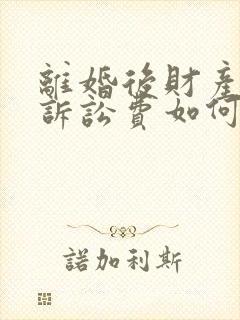 離婚後財產
訴訟費如何
諾加利斯